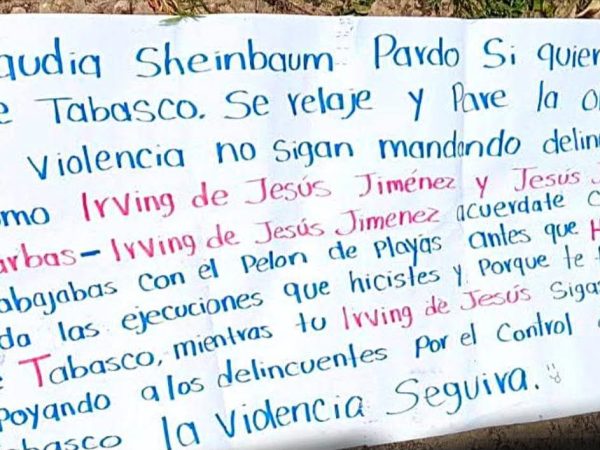 audia Sheinbaum Pardo Si quier
e Tabasco. Se relaje y Pare la o
Violencia no sigan mandando delin
omo Irving de Jesús Jiménez y Jesus J
arbas - Irving de Jesús Jimenez acuerdate c
abajabas con el Pelon de Playas antes que H
da las ejecuciones que hicistes y Porque te f
e Tabasco, mientras tu Irving de Jesús Sigas
Poyando a los delincuentes Por el Control
abasco la Violencia Seguira.